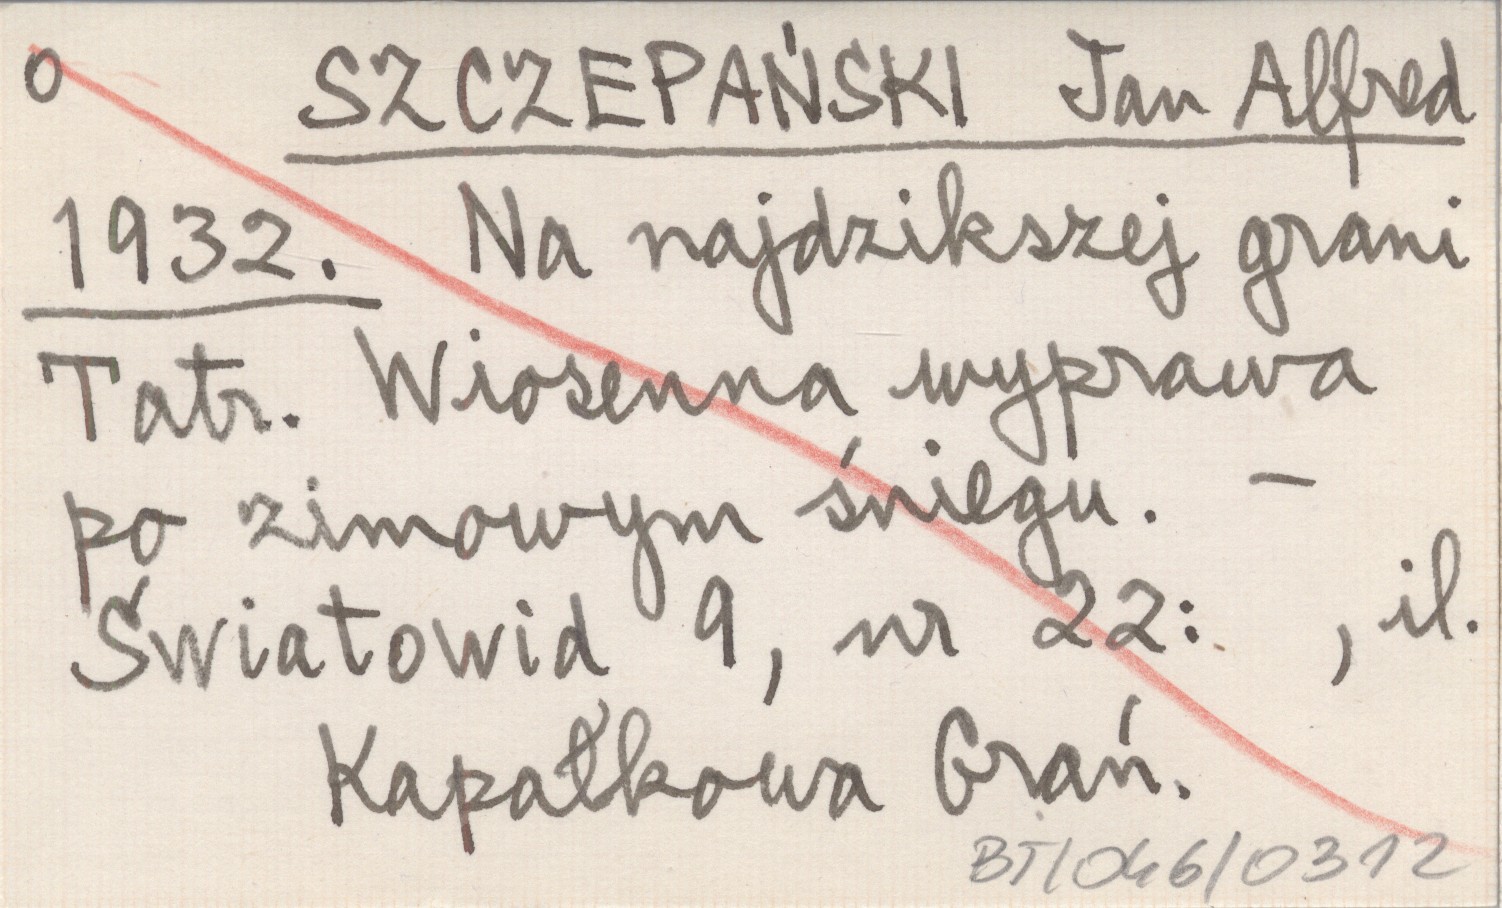 o SZCZEPAŃSKI Jan Alfred
1932. Na najdzikszej grani
Tatr. Wiosenna wyprawa
po zimowym śniegu. –
Światowid 9, nr 22: , il.
Kapałkowa Grań.
BT/046/0312